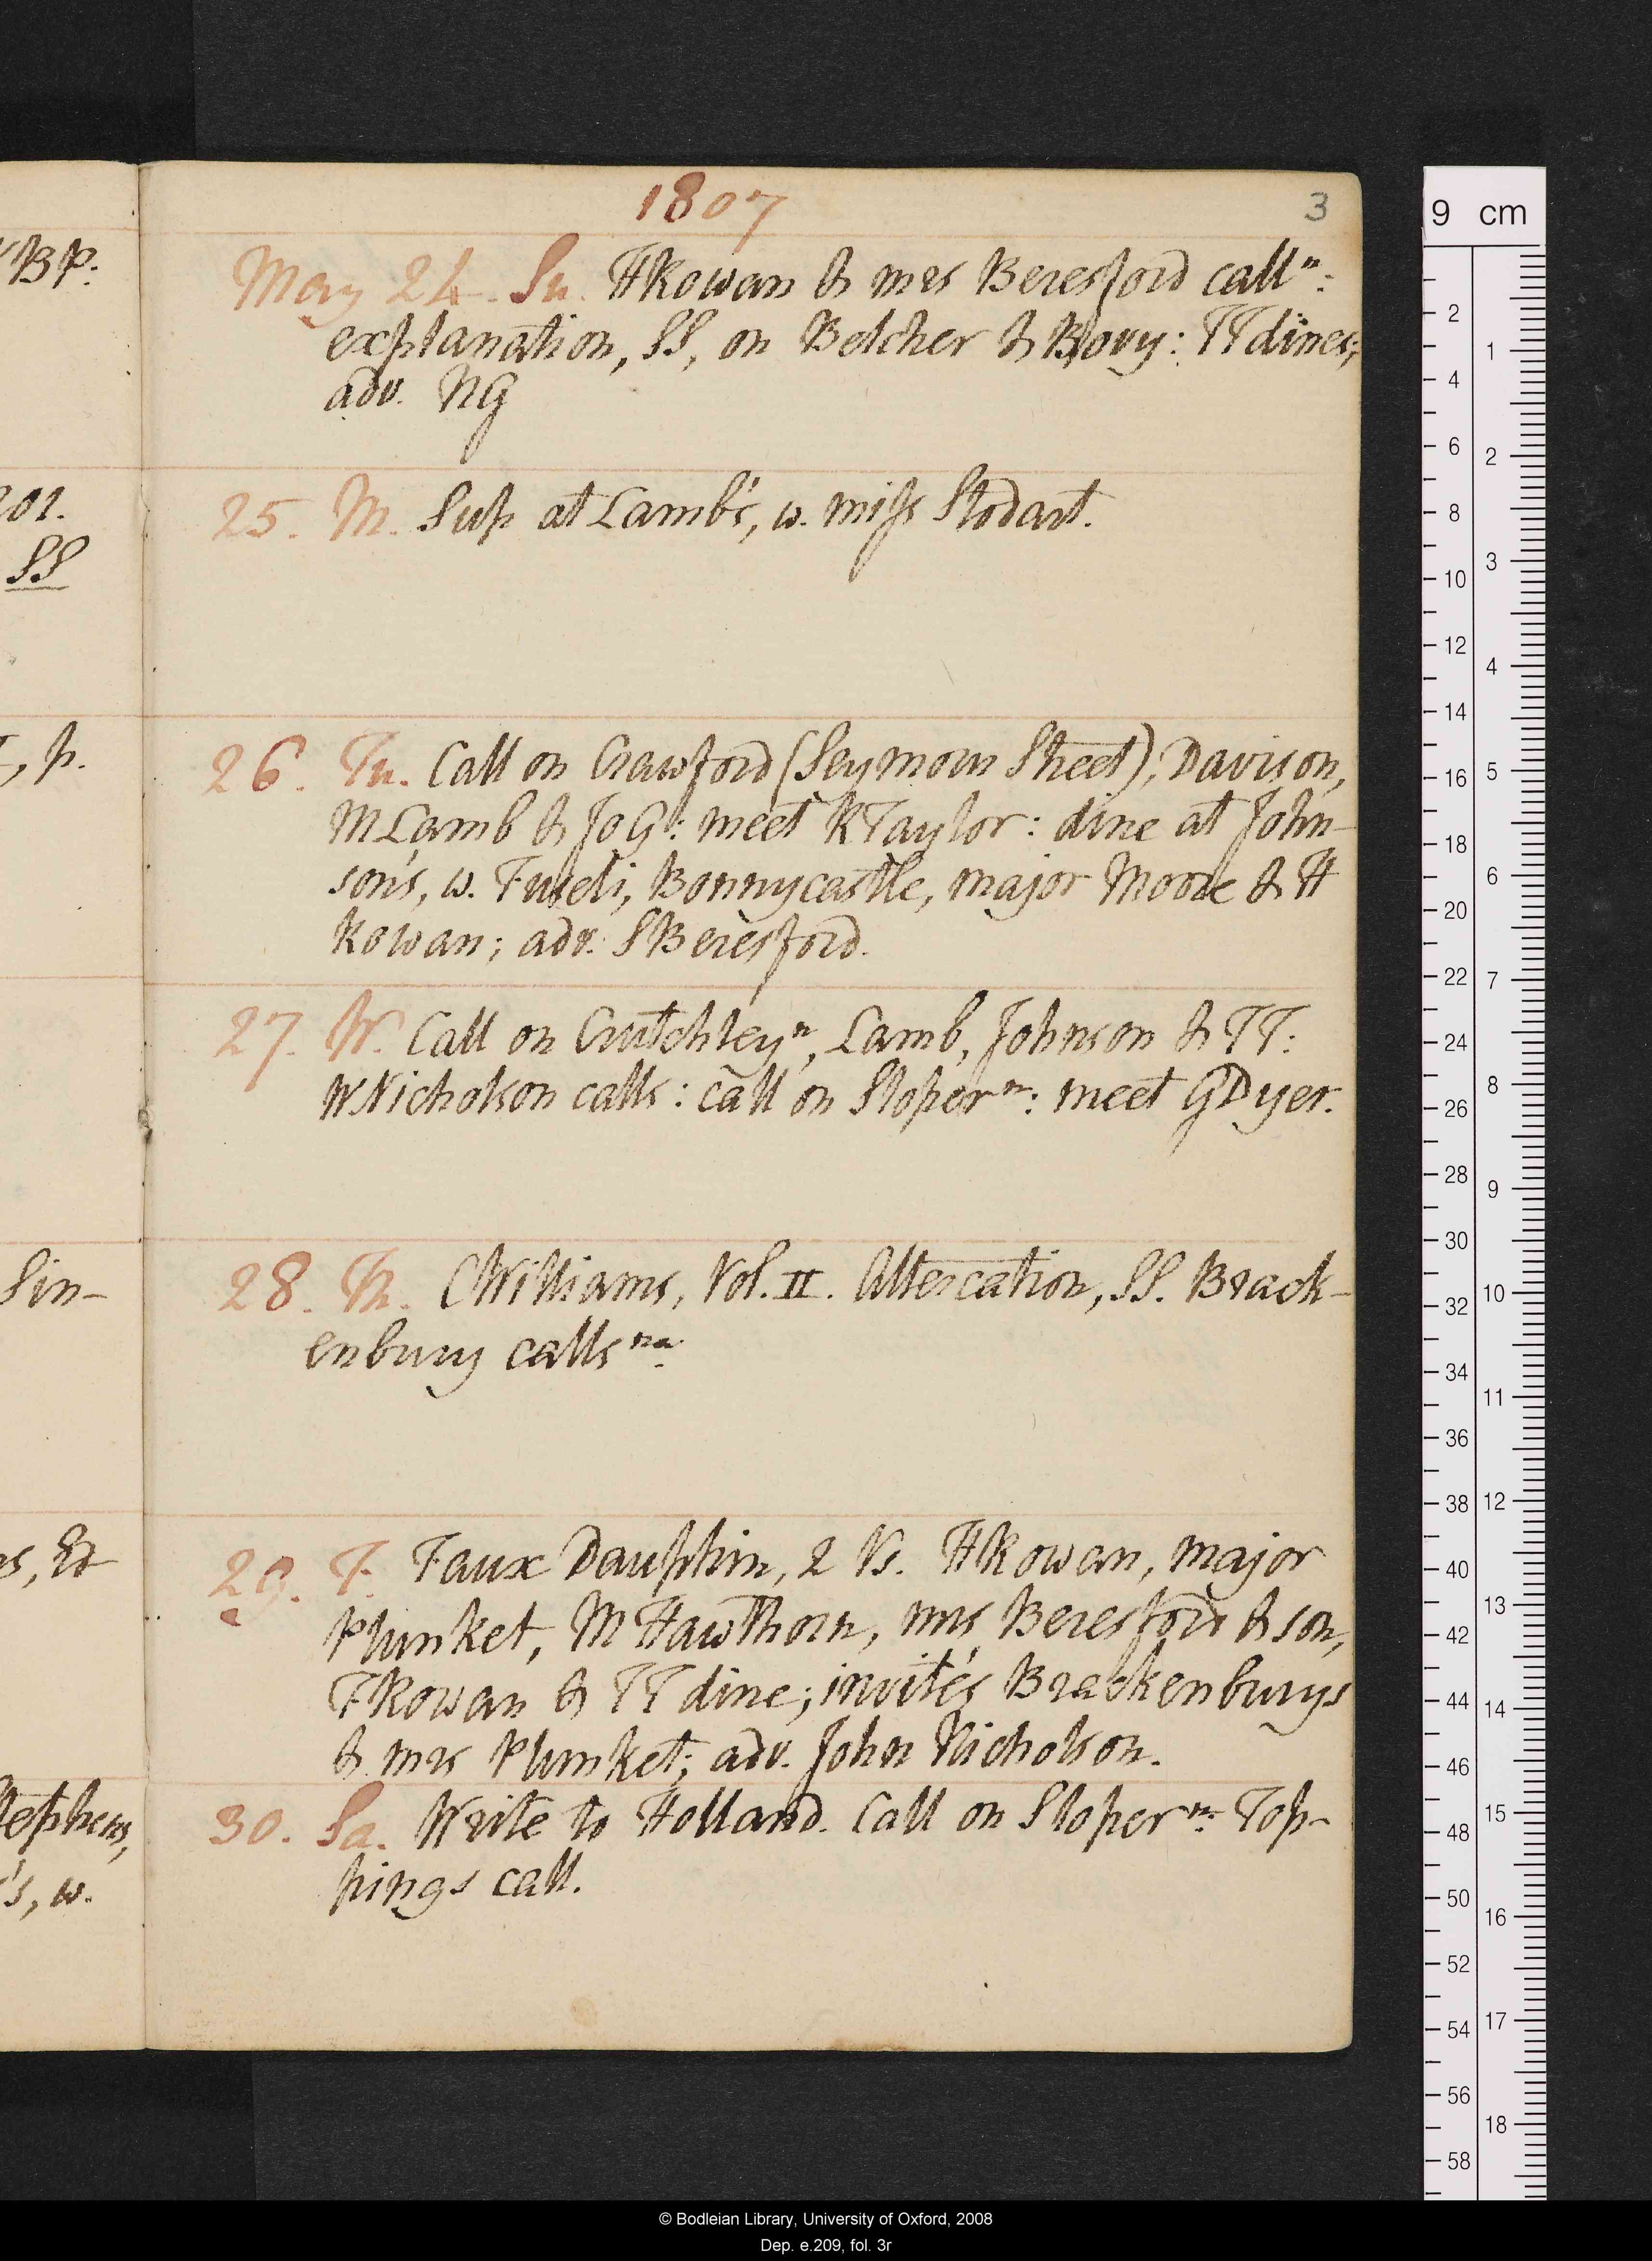 1807
3
May 24. Su. HRowan & mrs Beresford callⁿ:
explanation, SS, on Belcher & Bovy: TTdines;
adv. NG
25. M. Sup at Lamb's, w. miss Stodart.
26. Tu. Call on Crawford (Seymour Street), Davison,
MLamb & JoG: meet RTaylor: dine at John-
son's, w. Fuseli, Bonnycastle, major Moore & H
Rowan; adv. SBeresford.
27. W. Call on Crutchleyⁿ, Lamb, Johnson & TT:
WNicholson calls: call on Sloperⁿ: meet GDyer.
28. Th. CWilliams, Vol. II. Altercation, SS. Brack-
enbury callsⁿᵃ.
29. F. Faux Dauphin, 2 Vs. HRowan, major
Plunket, MHawthorn, mrs Beresford & son,
FRowan & TT dine; invités Brackenburys
& mrs Plunket; adv. John Nicholson.
30. Sa. Write to Holland. Call on Sloperⁿ: Top-
pings call.
BP:
201.
SS
, p.
Sin-
s, &
Stephens,
's, w.
9 cm
2
4
6
8
10
12
14
16
18
20
22
24
26
28
30
32
34
36
38
40
42
44
46
48
50
52
54
56
58
1
2
3
4
5
6
7
8
9
10
11
12
13
14
15
16
17
18
© Bodleian Library, University of Oxford, 2008
Dep. e.209, fol. 3r